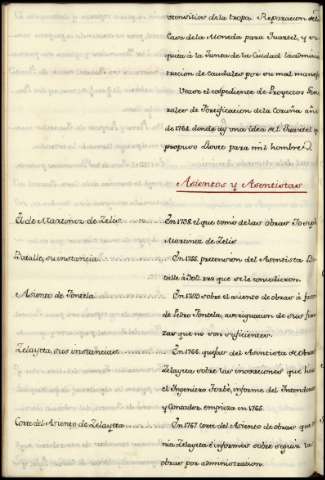 utensilios de la tropa. Reparacion de la
Casa de la Moneda para Cuartel, y se
quita à la Junta de la Ciudad la administ
tracion de Caudales por su mal manejo.
Vease el expediente de Proyectos Gene
rales de Fortificacion de la Coruña año
de 1768 donde ay una idea del Cuartel q.
propuso Llovet para mil hombres.
Asientos y Asentistas
El de Martinez de Zelis
En 1738. el que tomó de las obras Joseph
Martinez de Zelis
Batalle, su instancia
En 1755. pretension del Asentista Ba
talle à
que se le concedieron.
Asiento de Fontela
En 1759 sobre el asiento de obras à favor
de Pedro Fontela, averiguacion de sus fian
zas que no son suficientes.
Zelayeta, sus instancias
En 1766. quejas del Asentista de Obras
Zelayeta sobre las invasiones que hizo
el Ingeniero Fortè, informe del Intendente
y Contador, empieza en 1765.
Corte del Asiento de Zelayeta
En 1767 corte del Asiento de obras que te
nia Zelayeta è informes sobre seguir las
obras por administracion.